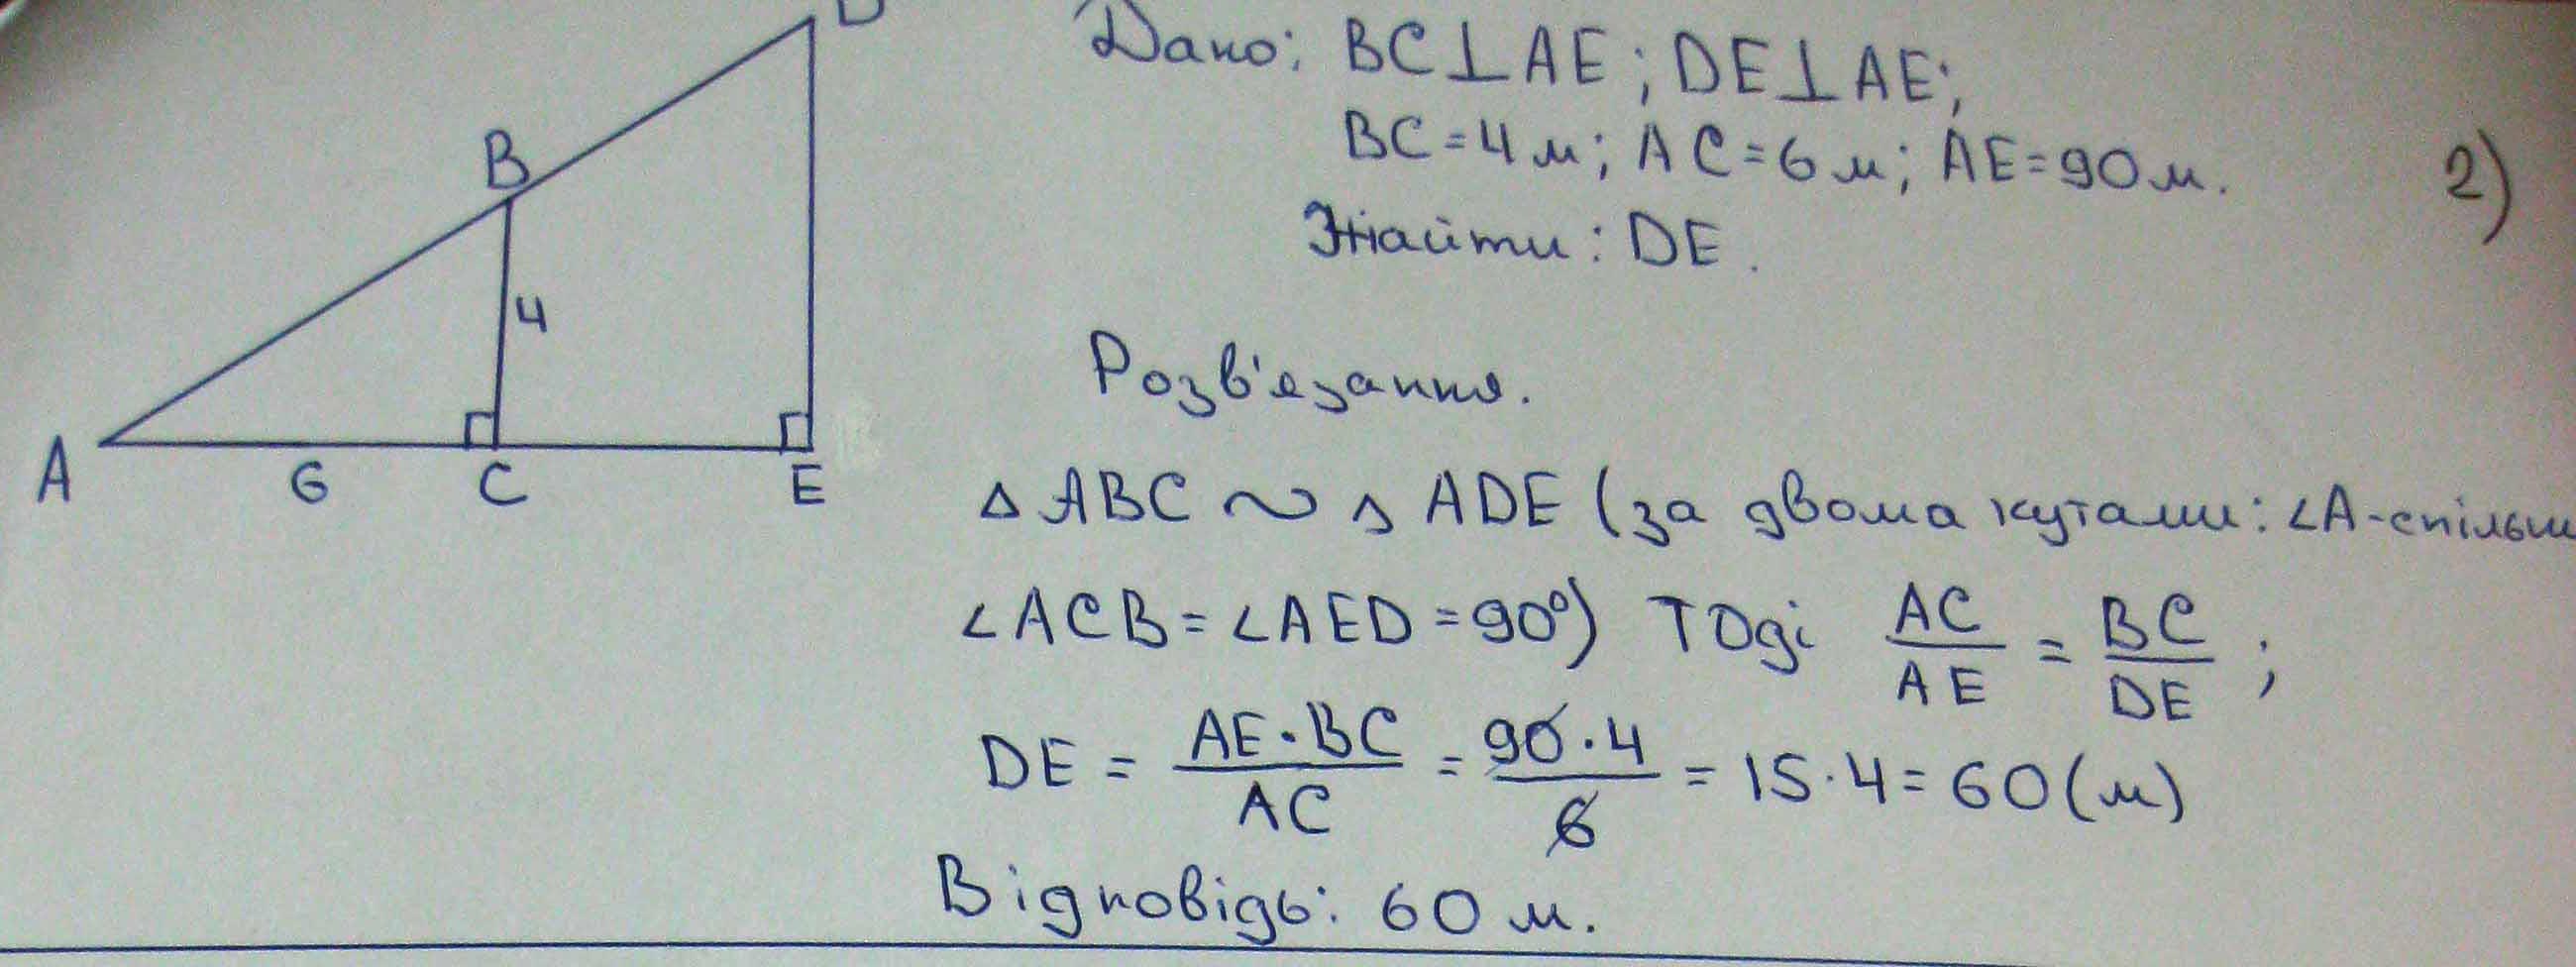 D
B
4
A 6 C E
Дано: BC⊥AE; DE⊥AE;
BC=4м; AC=6м; AE=90м.
2)
Знайти: DE.
Розв'язання.
△ABC ~ △ADE (за двома кутами: ∠A-спільн
∠ACB=∠AED=90°) Тоді AC/AE = BC/DE;
DE = AE·BC/AC = 90·4/6 = 15·4=60(м)
Відповідь: 60 м.